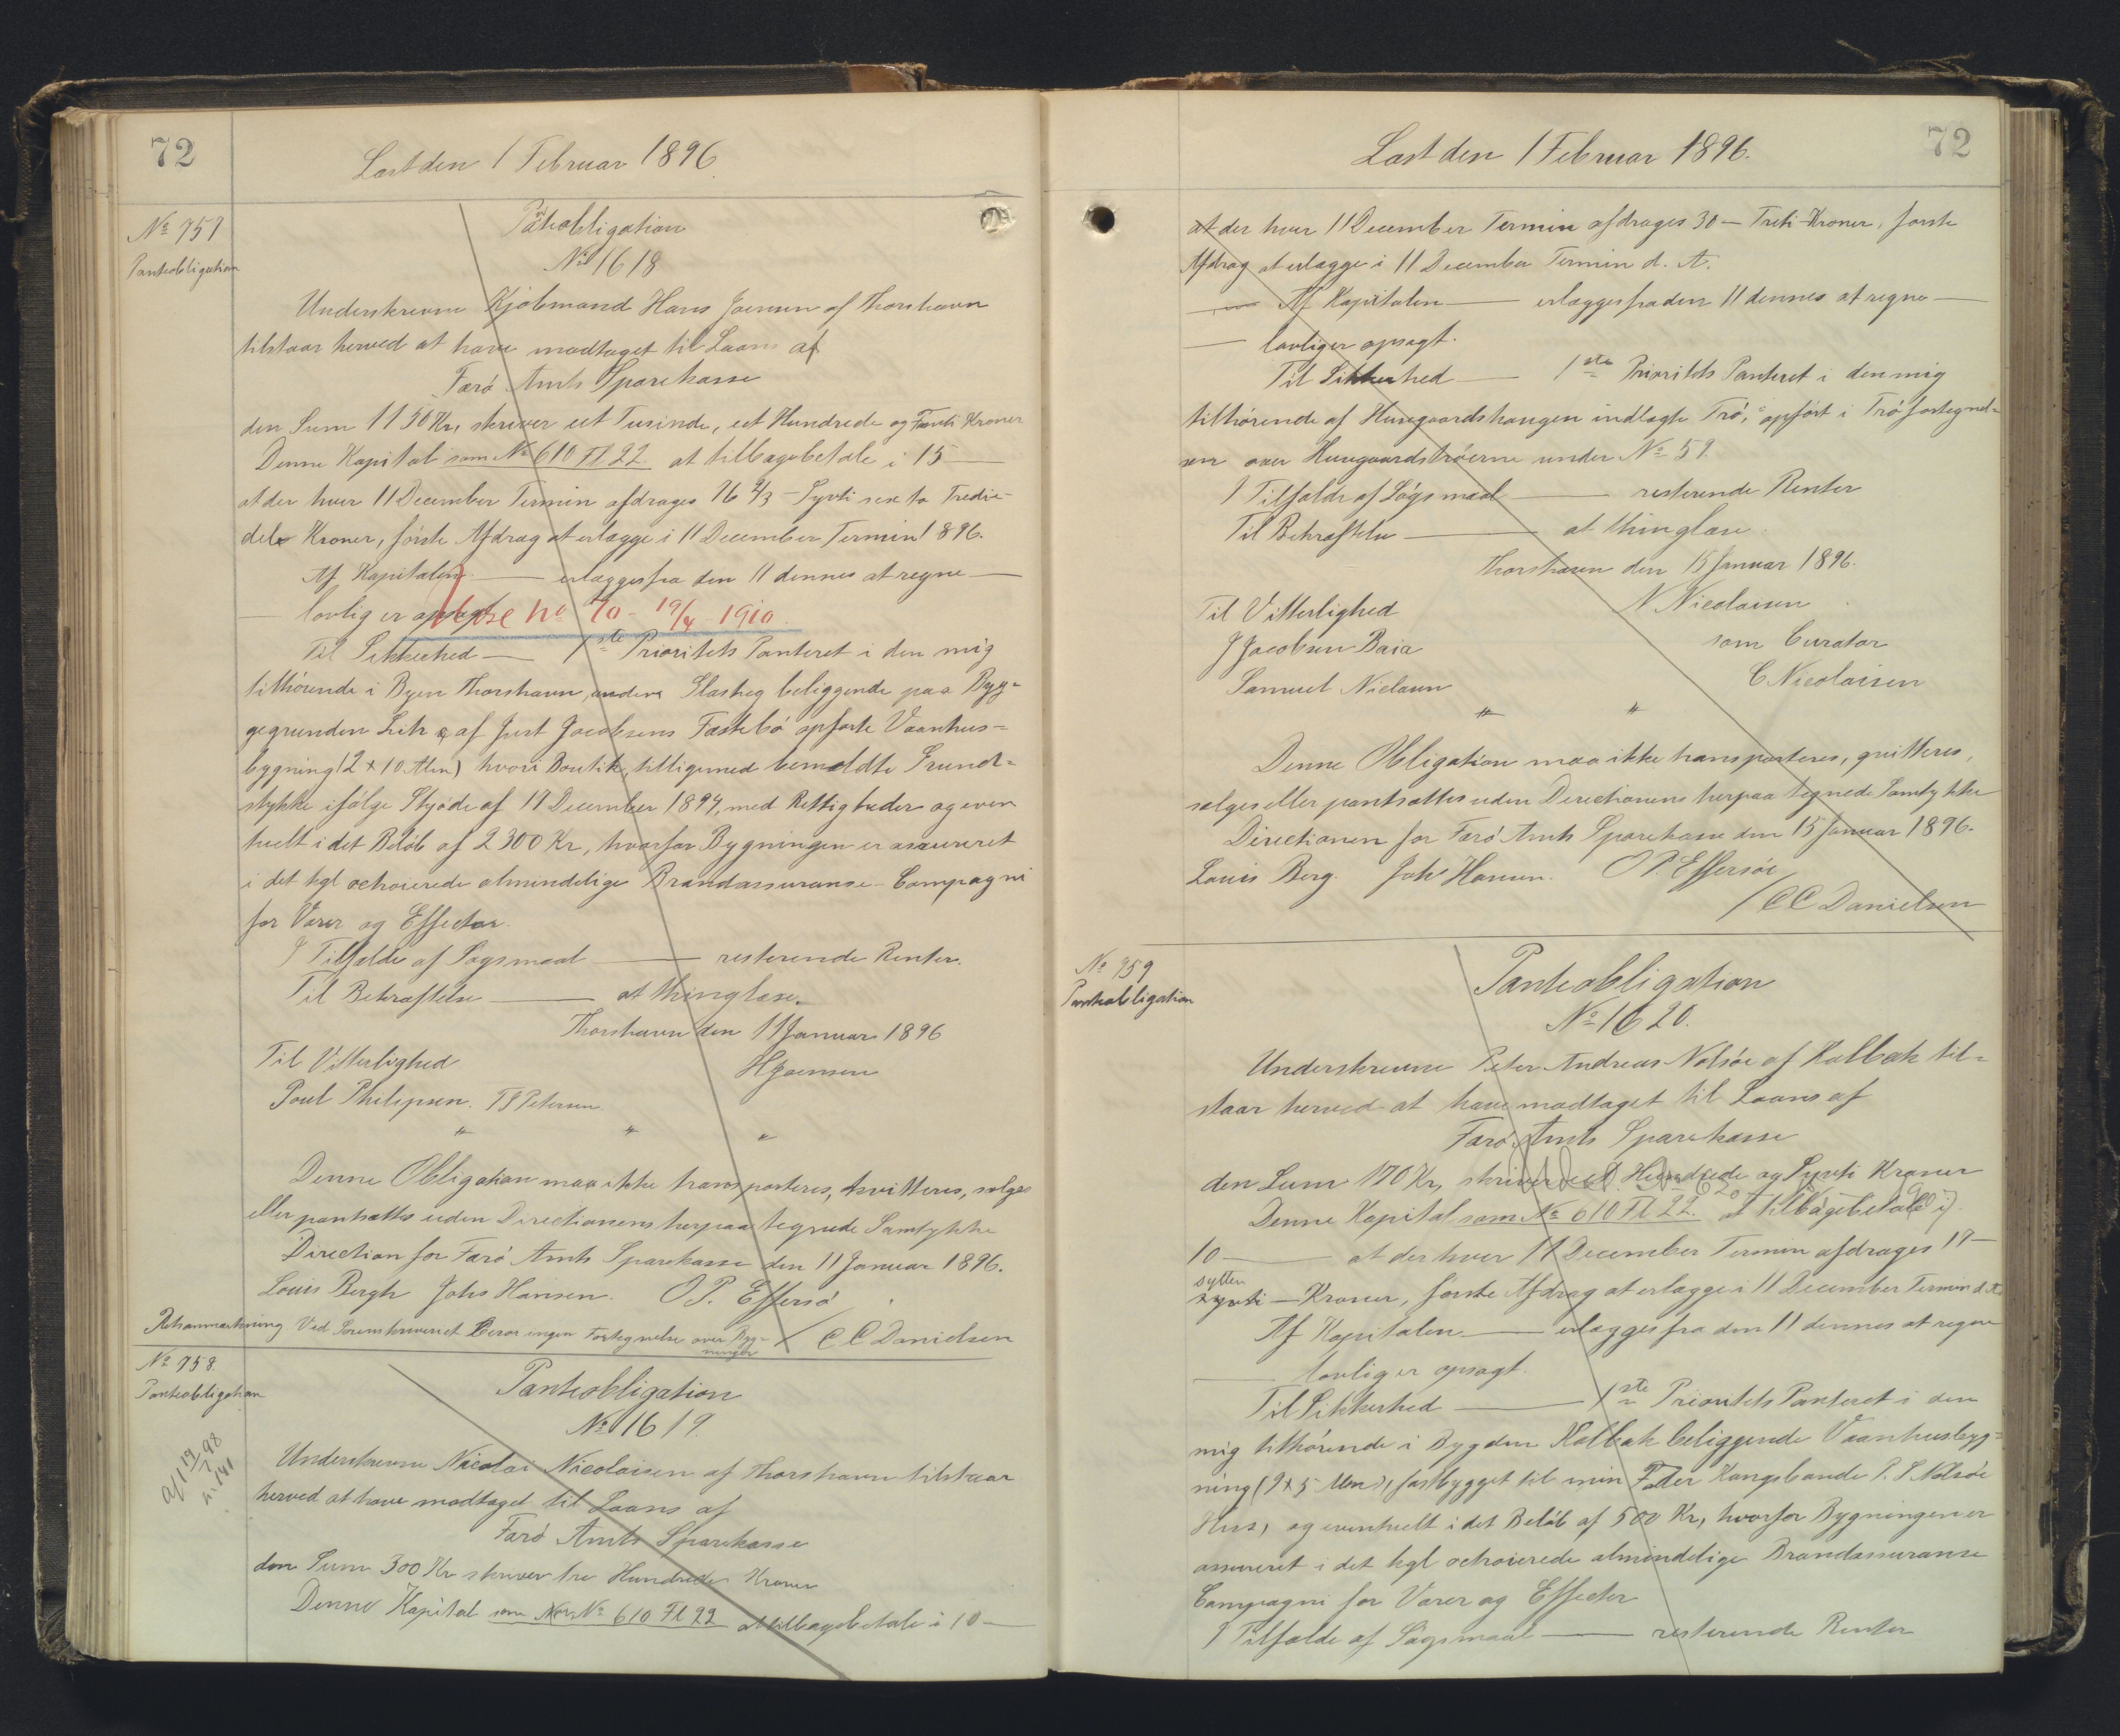 72
Læst den 1 Februar 1896.
No 757
Panteobligation
Panteobligation
No 1618
Underskrevne Kjøbmand Hans Joensen af Thorshavn
tilstaar herved at have modtaget til Laans af
Færø Amts Sparekasse
den Sum 1150 Kr, skriver eet Tusinde, eet Hundrede og Femti Kroner
Denne Kapital som No 610 Fl 22. at tilbagebetale i 15 —
at der hver 11 December Termin afdrages 76 2/3 — Syvti sex to Tredie-
dele Kroner, første Afdrag at erlægge i 11 December Termin 1896.
Af Kapitalen — erlægges fra den 11 dennes at regne —
— lovlig er opsagt.
No 70 - 19/4 1910.
Til Sikkerhed — 1ste Prioritets Panteret i den mig
tilhørende i Byen Thorshavn, beliggende paa Byg-
gegrunden Litr q af Just Jacobsens Fæstebø opførte Vaanhus-
bygning (12 x 10 Alen) hvori Boutik, tilligemed bemeldte Grund-
stykke ifølge Skjøde af 17 December 1894, med Rettigheder og even
tuelt i det Beløb af 2300 Kr, hvorfor Bygningen er assureret
i det kgl octroierede almindelige Brandassurance-Compagni
for Varer og Effecter.
I Tilfælde af Søgsmaal — resterende Renter.
Til Bekræftelse — at thinglæse.
Thorshavn den 11 Januar 1896
Til Vitterlighed HJoensen
Poul Philipsen. Petersen
" " "
Denne Obligation maa ikke transporteres, kvitteres, sælges
eller pantsættes uden Directionens herpaa tegnede Samtykke
Direction for Færø Amts Sparekasse den 11 Januar 1896.
Louis Bergh Johs Hansen. O P. Effersø
/ C C Danielsen
Retsanmærkning Ved Sorenskriveriet beror ingen Fortegnelse over Byg-
ninger
No 758.
Panteobligation
Panteobligation
No 1619.
Underskrevne Nicolai Nicolaisen af Thorshavn tilstaar
herved at have modtaget til Laans af
Færø Amts Sparekasse
den Sum 300 Kr skriver tre Hundrede Kroner
Denne Kapital som No 610 Fl 22 at tilbagebetale i 10 —
72
Læst den 1 Februar 1896.
at der hver 11 December Termin afdrages 30 — Treti Kroner, første
Afdrag at erlægge i 11 December Termin d. A.
— Af Kapitalen — erlægges fra den 11 dennes at regne —
— lovlig er opsagt.
Til Sikkerhed — 1ste Prioritets Panteret i den mig
tilhørende af Husegaardshaugen indlagte Trø, opført i Trøfortegnel-
sen over Husegaardstrøerne under No 59.
I Tilfælde af Søgsmaal — resterende Renter
Til Bekræftelse — at thinglæse.
Thorshavn den 15 Januar 1896.
Til Vitterlighed N Nicolaisen
J Jacobsen Baia som Curator
Samuel Nielsen C Nicolaisen
" "
Denne Obligation maa ikke transporteres, quitteres,
sælges eller pantsættes uden Directionens herpaa tegnede Samtykke
Directionen for Færø Amts Sparekasse den 15 Januar 1896.
Louis Berg. Joh Hansen. O P. Effersøe
/ C C Danielsen
No 759
Panteobligation
Panteobligation
No 1620.
Underskrevne Peter Andreas Nolsøe af Kalbak til-
staar herved at have modtaget til Laans af
Færø Amts Sparekasse
den Sum 170 Kr, skriver eet Hundrede og Syvti Kroner
Denne Kapital som No 610 Fl 22. at tilbagebetale i
10 — at der hver 11 December Termin afdrages 17 —
sytten
syvti — Kroner, første Afdrag at erlægge i 11 December Termin d. A.
Af Kapitalen — erlægges fra den 11 dennes at regne
— lovlig er opsagt.
Til Sikkerhed — 1ste Prioritets Panteret i den
mig tilhørende i Bygden Kalbak beliggende Vaanhusbyg-
ning (9 x 5 Alen), fastbygget til min Fader Kongsbonde P. Nolsøe
Hus, og eventuelt i det Beløb af 500 Kr, hvorfor Bygningen er
assureret i det kgl octroierede almindelige Brandassurance
Compagni for Varer og Effecter
I Tilfælde af Søgsmaal — resterende Renter